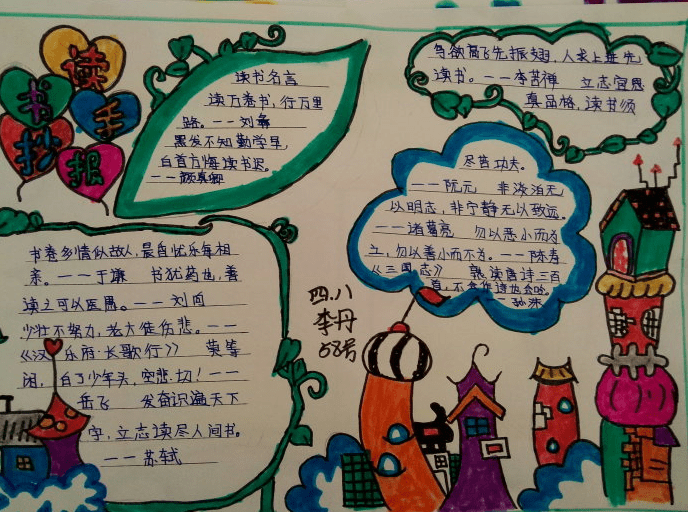 读书手抄报
读书名言
读万卷书，行万里
路。——刘彝
黑发不知勤学早，
白首方悔读书迟。
——颜真卿
鸟欲高飞先振翅，人求上进先
读书。——李苦禅 立志宜思
真品格，读书须
尽苦功夫。
——阮元 非淡泊无
以明志，非宁静无以致远。
——诸葛亮 勿以恶小而为
之，勿以善小而不为。——陈寿
《三国志》 熟读唐诗三百
首，不会作诗也会吟。
——孙洙
书卷多情似故人，晨昏忧乐每相
亲。——于谦 书犹药也，善
读之可以医愚。——刘向
少壮不努力，老大徒伤悲。——
《汉乐府·长歌行》 莫等
闲，白了少年头，空悲切！——
岳飞 发奋识遍天下
字，立志读尽人间书。
——苏轼
四.八
李丹
58号